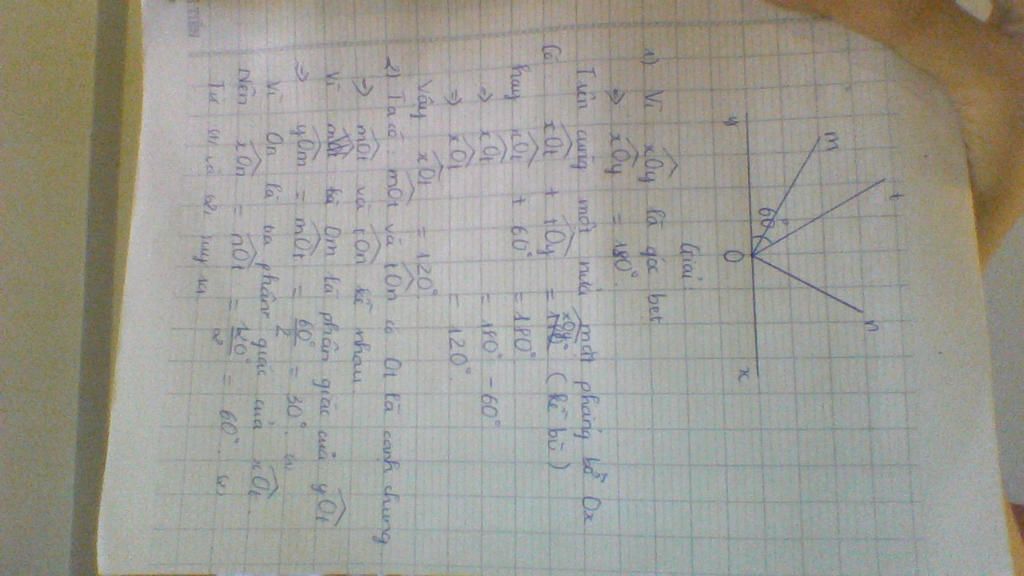 y
m
t
n
60°
O
x
Giải
1) Vì xOy là góc bẹt
=> xOy = 180°.
Trên cùng một nửa mặt phẳng bờ Ox
Có xOt + tOy = xOy (kề bù)
hay xOt + 60° = 180°
=> xOt = 180° - 60°
=> xOt = 120°.
Vậy xOt = 120°.
2) Ta có mOt và tOn có Ot là cạnh chung
=> mOt và tOn kề nhau.
Vì tia Om là phân giác của yOt
=> yOm = mOt = 60°/2 = 30°.
Vì On là tia phân giác của xOt.
Nên xOn = nOt = 120°/2 = 60°.
Từ và suy ra